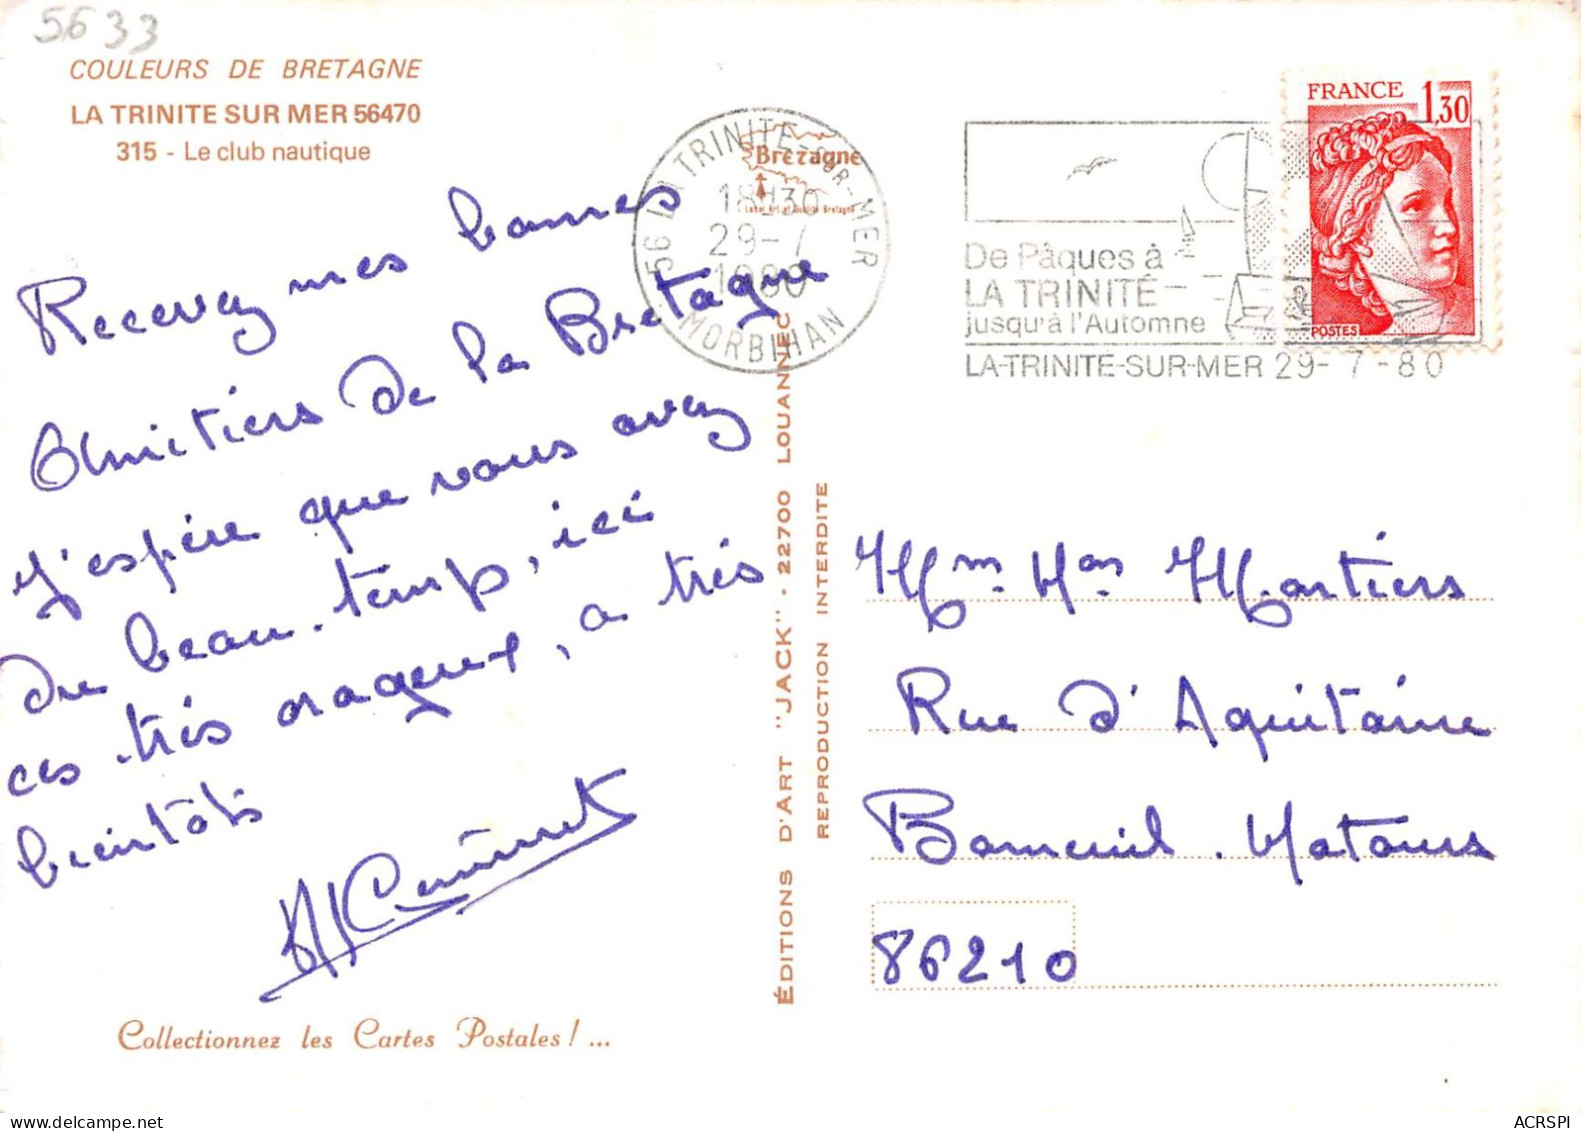 5633
COULEURS DE BRETAGNE
LA TRINITE SUR MER 56470
315 - Le club nautique
Recevez mes bonnes
Amitiers de la Bretagne
J'espère que vous avez
du beau-temp, ici
ces très orageux, a très
bientôts
Collectionnez les Cartes Postales ! ...
56 LA TRINITE-SUR-MER
18H30
29-7
1980
MORBIHAN
Bretagne
De Pâques à
LA TRINITÉ
jusqu'à l'Automne
LA-TRINITE-SUR-MER 29- 7 -80
FRANCE 1,30
POSTES
ÉDITIONS D'ART "JACK" - 22700 LOUANNEC
REPRODUCTION INTERDITE
Mm. Mr Martiers
Rue d'Aquitaine
Bonneuil. Matours
86210
ACRSPI